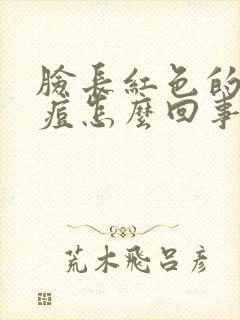 臉長紅色的
痘怎麼回事
荒木飛呂彦